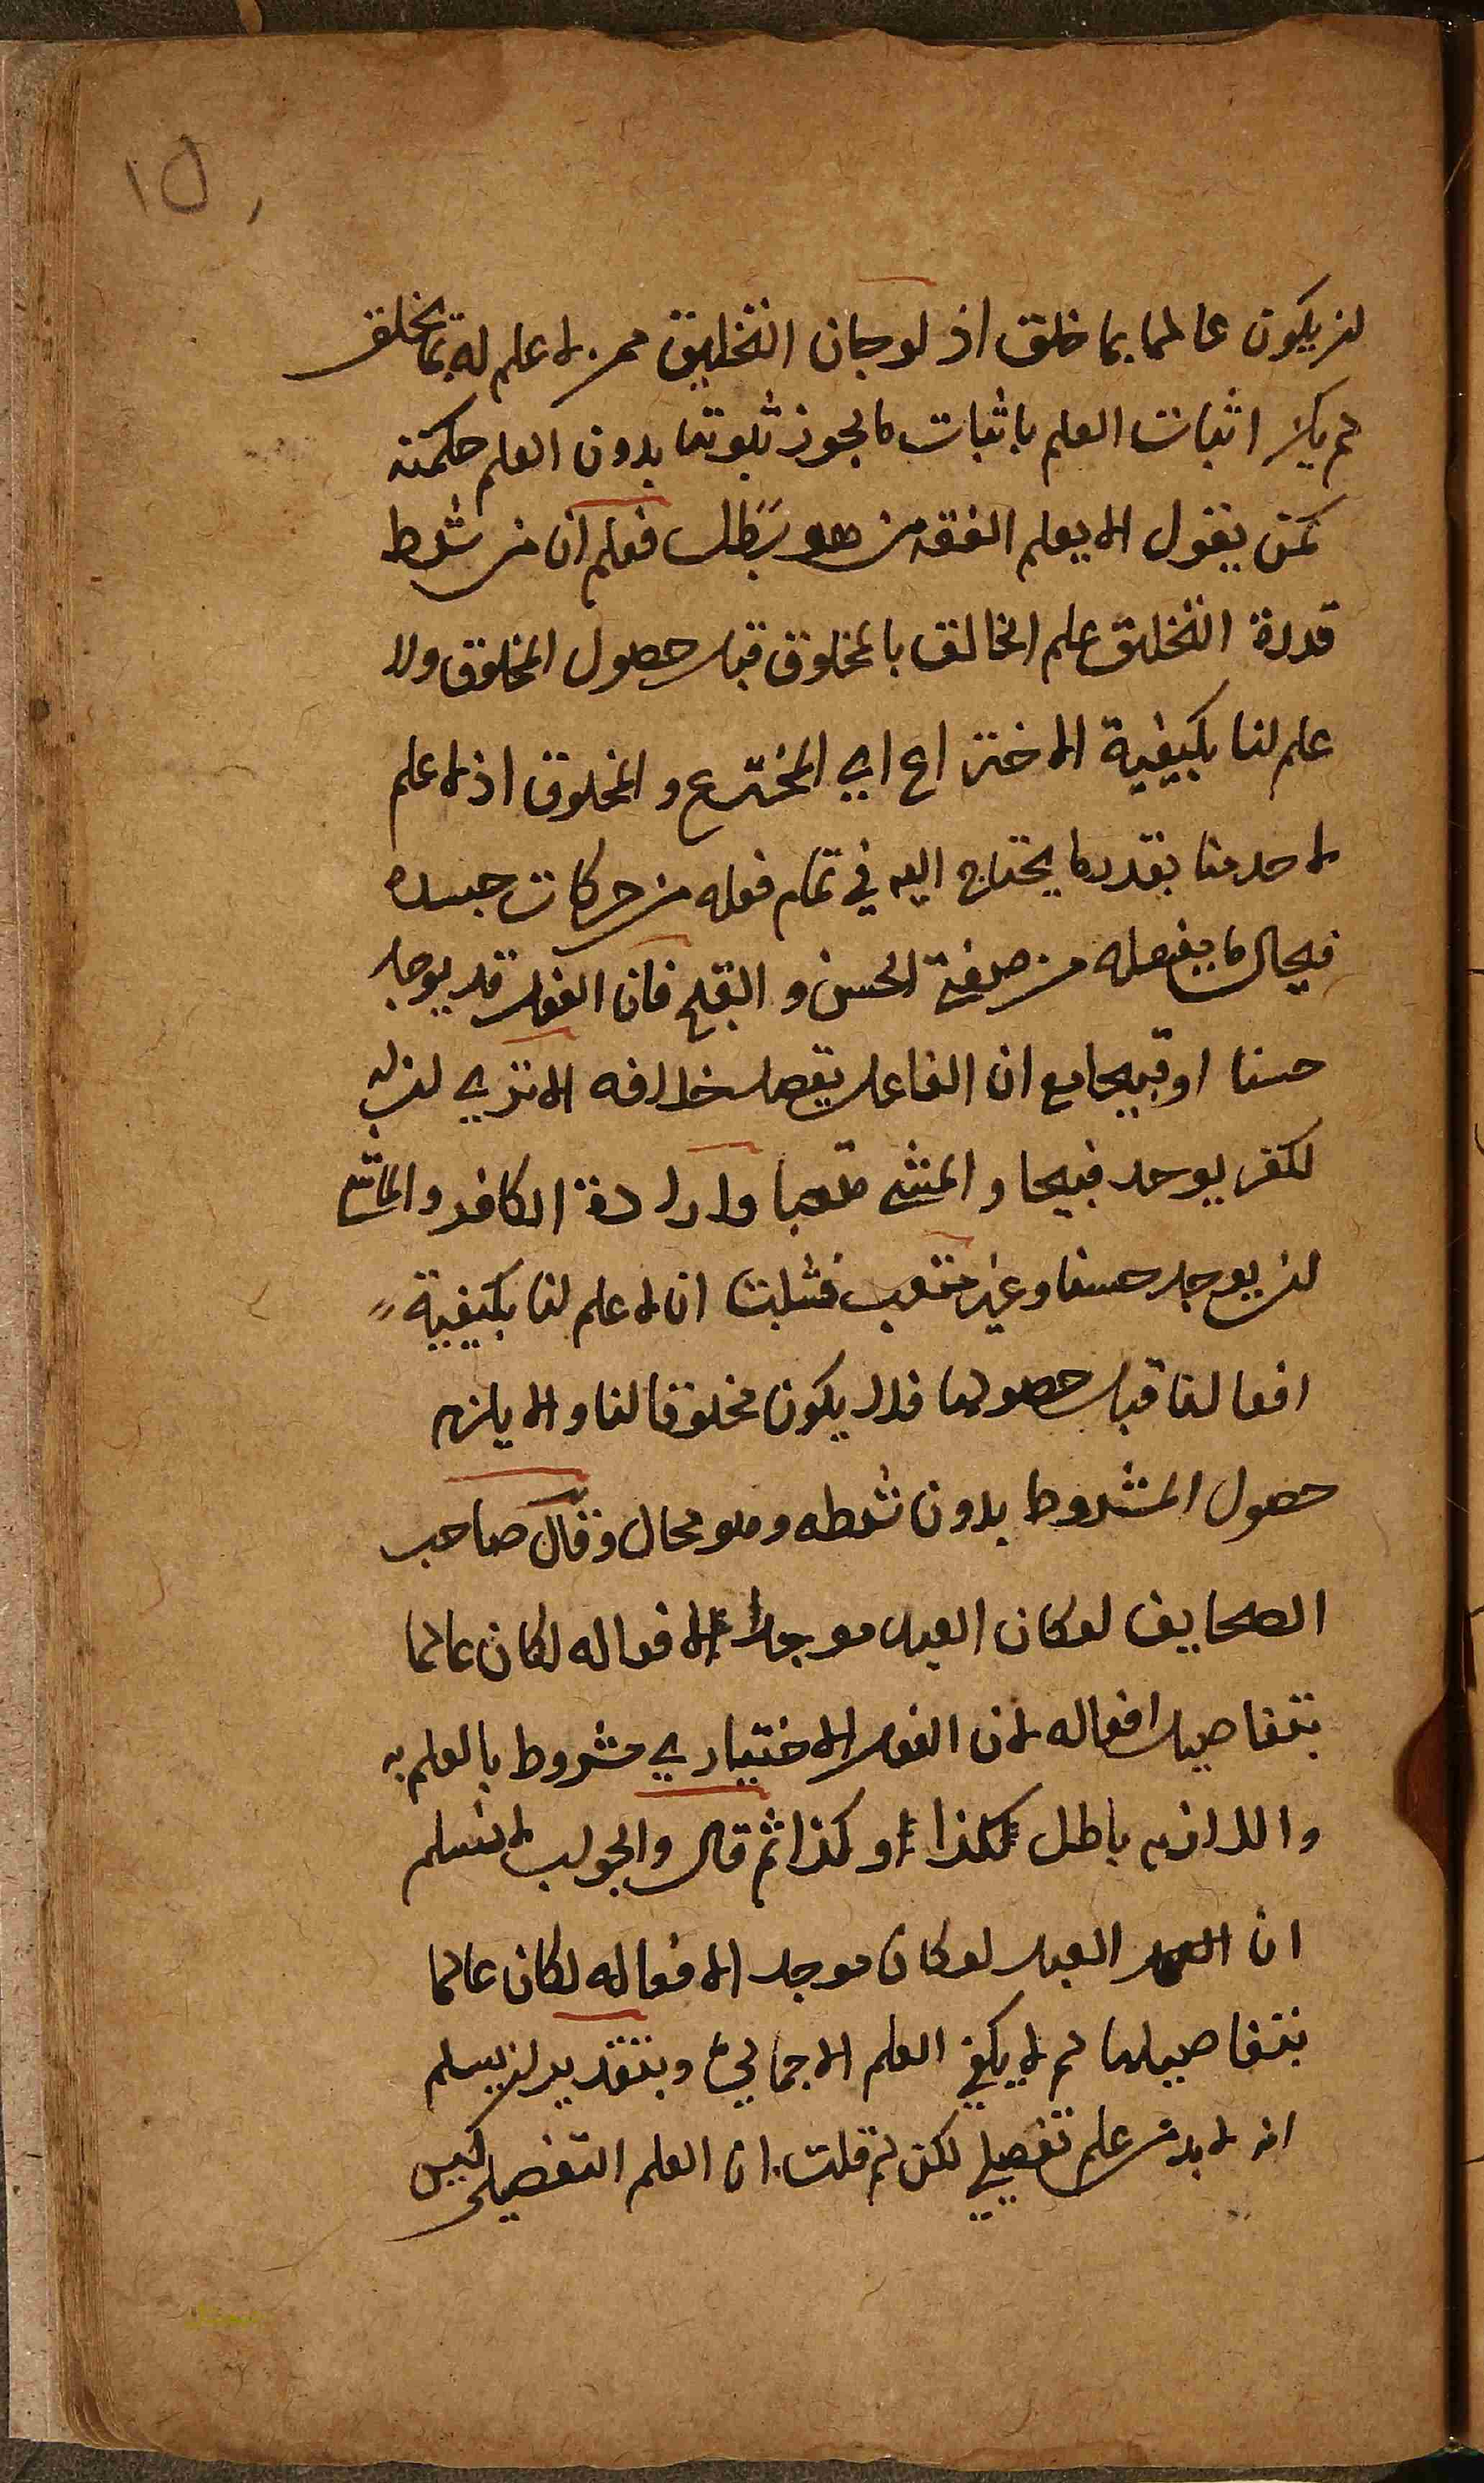 ١٥
ان يكون عالما بما خلق اذ لو جاز التخليق ممن لا علم له بما يخلق
لم يكن اثبات العلم باثبات ما يجوز ثبوتها بدون العلم حكمته
كمن يقول الا يعلم الفقه من هو بطل فعلم ان من شرط
قدرة التخليق علم الخالق بالمخلوق قبل حصول المخلوق ولا
علم لنا بكيفية الاختراع اي المخترع والمخلوق اذ لا علم
لاحد منا بقدر ما يحتاج اليه في تمام فعله من حركات جسده
فيحال ما يفعله من صفتي الحسن و القبح فان الفعل قد يوجد
حسنا او قبيحا مع ان الفاعل يقصد خلافه الا تري ان
لكفر يوجد قبيحا و المشي متعبا وارادة الكافر والماشي
ان يوجد حسنا وغير متعب فثبت ان لا علم لنا بكيفية
افعالنا قبل حصولها فلا يكون مخلوقا لنا والا يلزم
حصول المشروط بدون شرطه وهو محال وقال صاحب
الصحايف لو كان العبد موجدا لافعاله لكان عالما
بتفاصيل افعاله لان الفعل الاختياري مشروط بالعلم به
واللازم باطل لكذا او كذا ثم قال والجواب لا نسلم
ان العبد لو كان موجد الافعاله لكان عالما
بتفاصيلها لم لا يكفي العلم الاجمالي وبتقدير ان يسلم
انه لا بد من علم تفصيلي لكن لم قلت ان العلم التفصيلي ليس